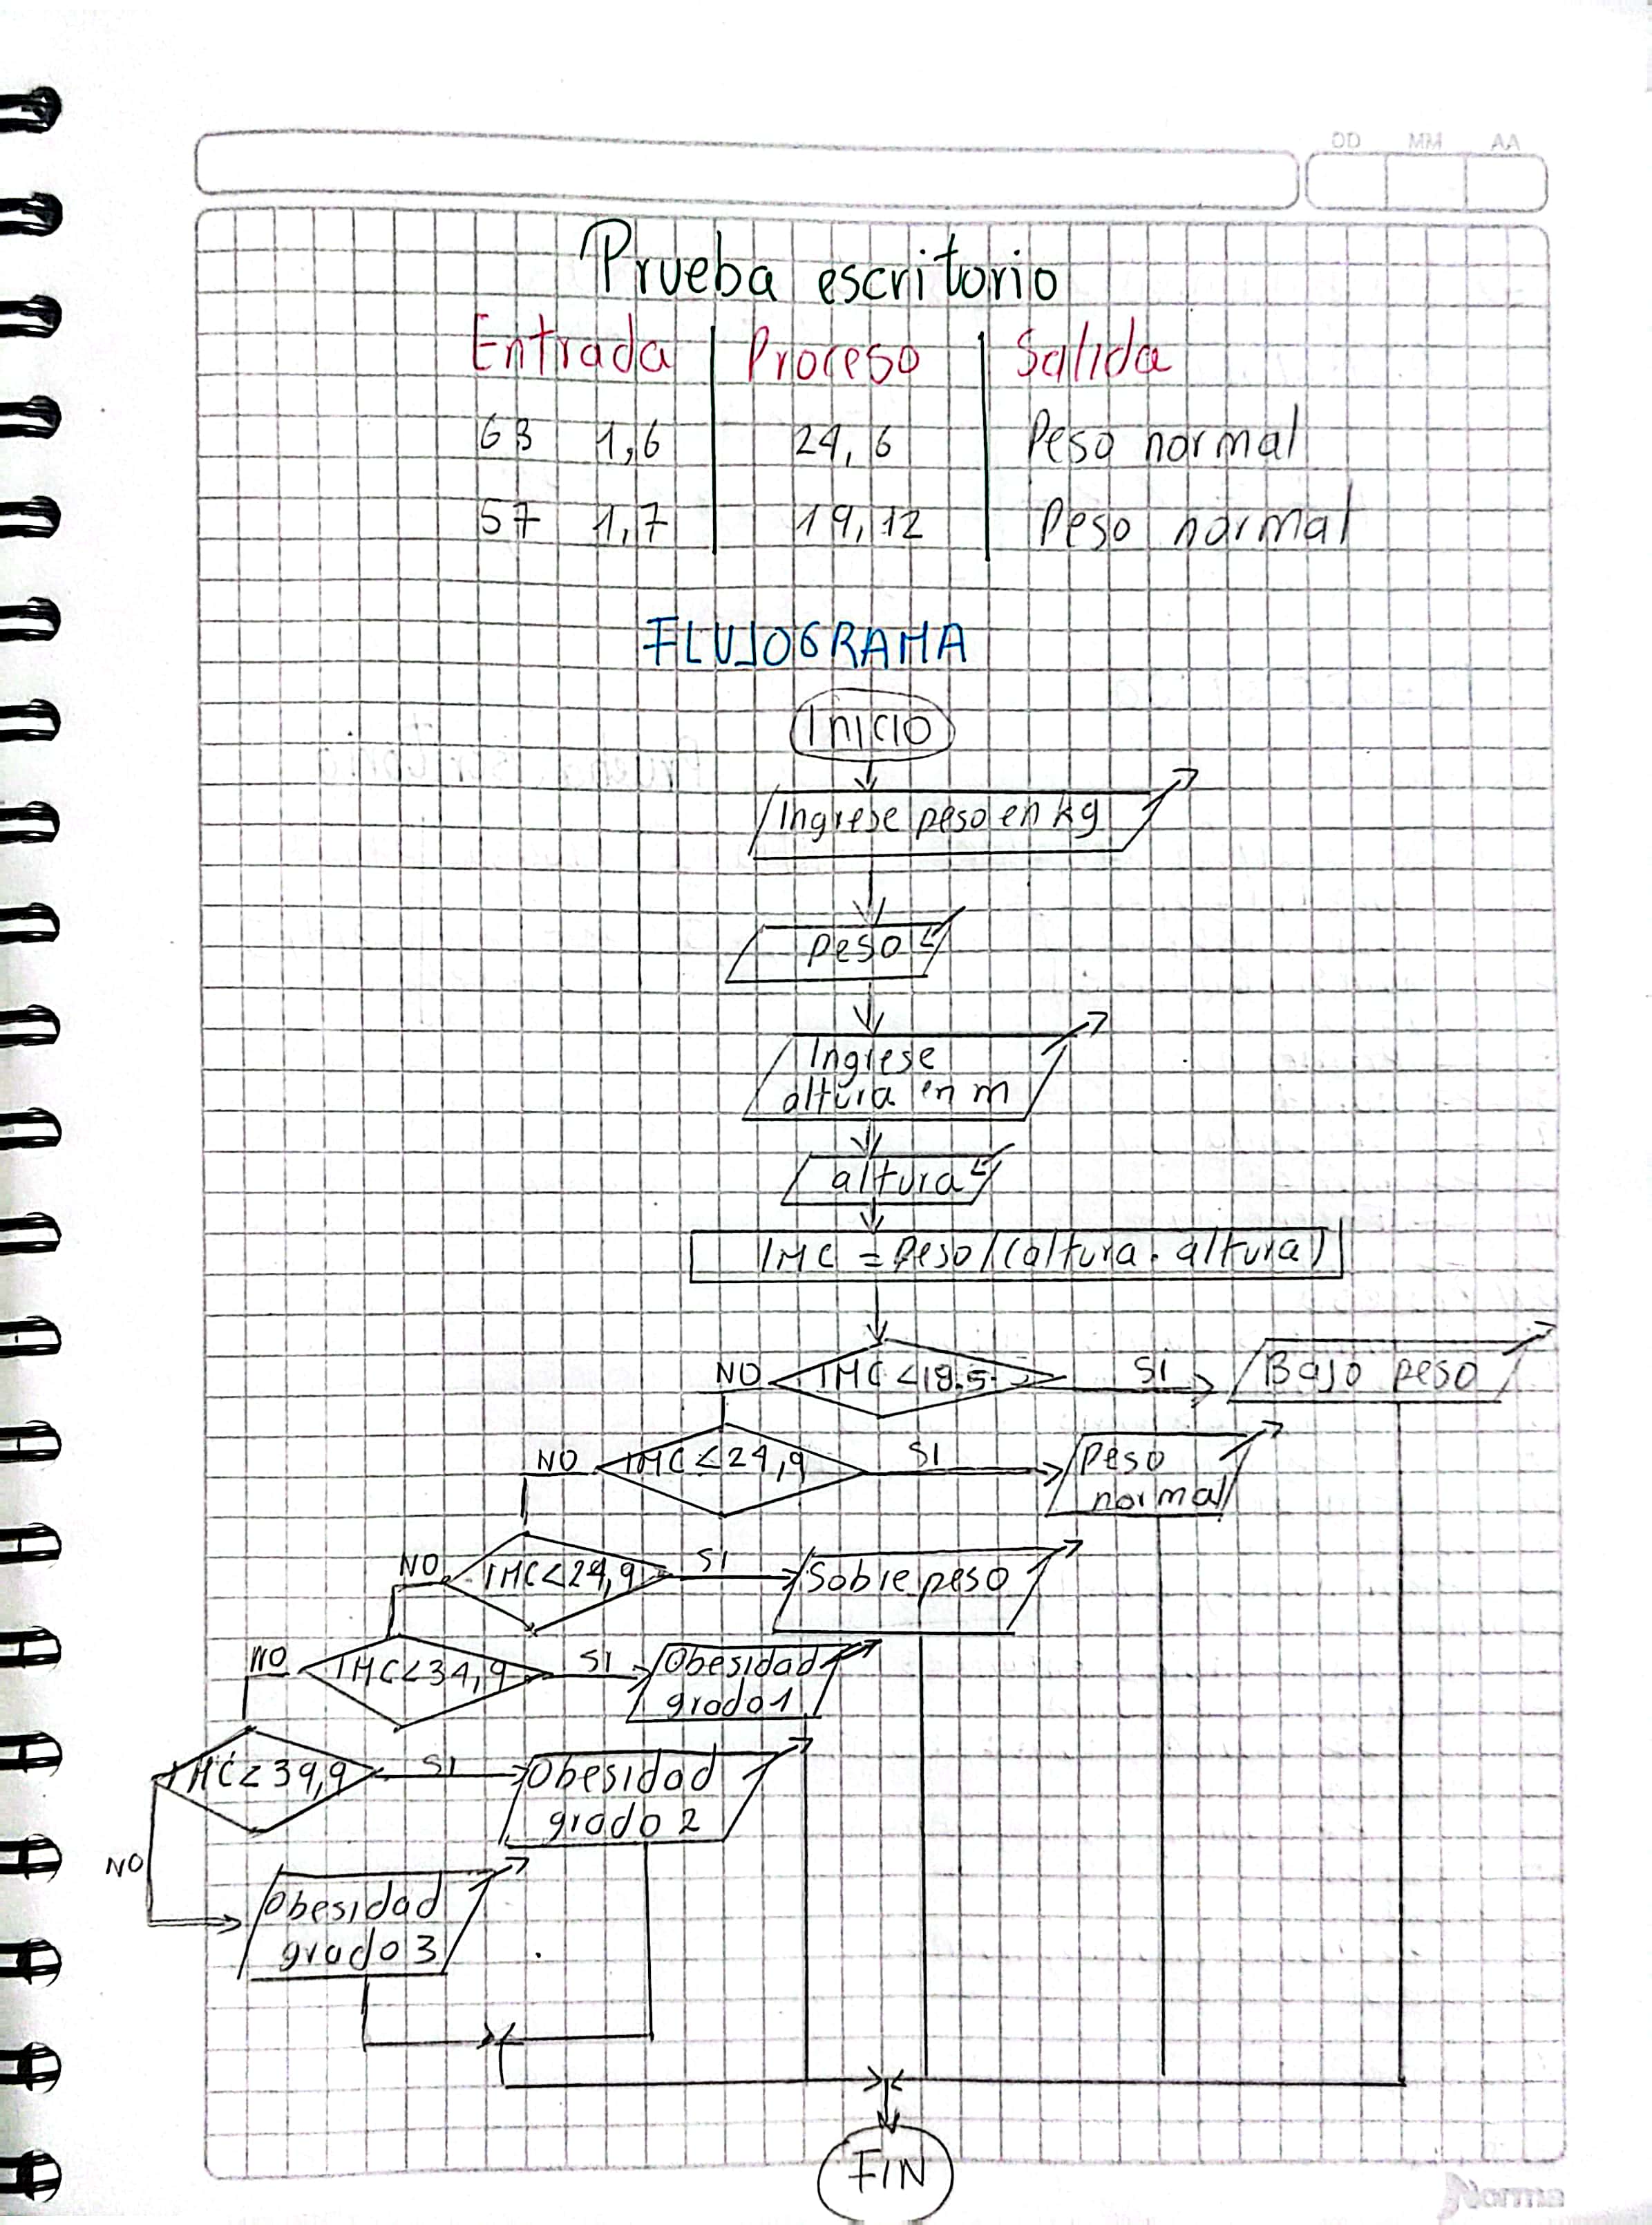 DD MM AA
Prueba escritorio
Entrada Proceso Salida
63 1,6 24,6 Peso normal
57 1,7 19,12 Peso normal
FLUJOGRAMA
Inicio
Ingrese peso en kg
Peso
Ingrese
altura en m
altura
IMC = Peso/(altura . altura)
NO IMC<18.5 SI Bajo peso
NO IMC<24,9 SI Peso
normal
NO IMC<29,9 SI Sobre peso
NO IMC<34,9 SI Obesidad
grado 1
IMC<39,9 SI Obesidad
grado 2
NO
Obesidad
grado 3
FIN
Norma